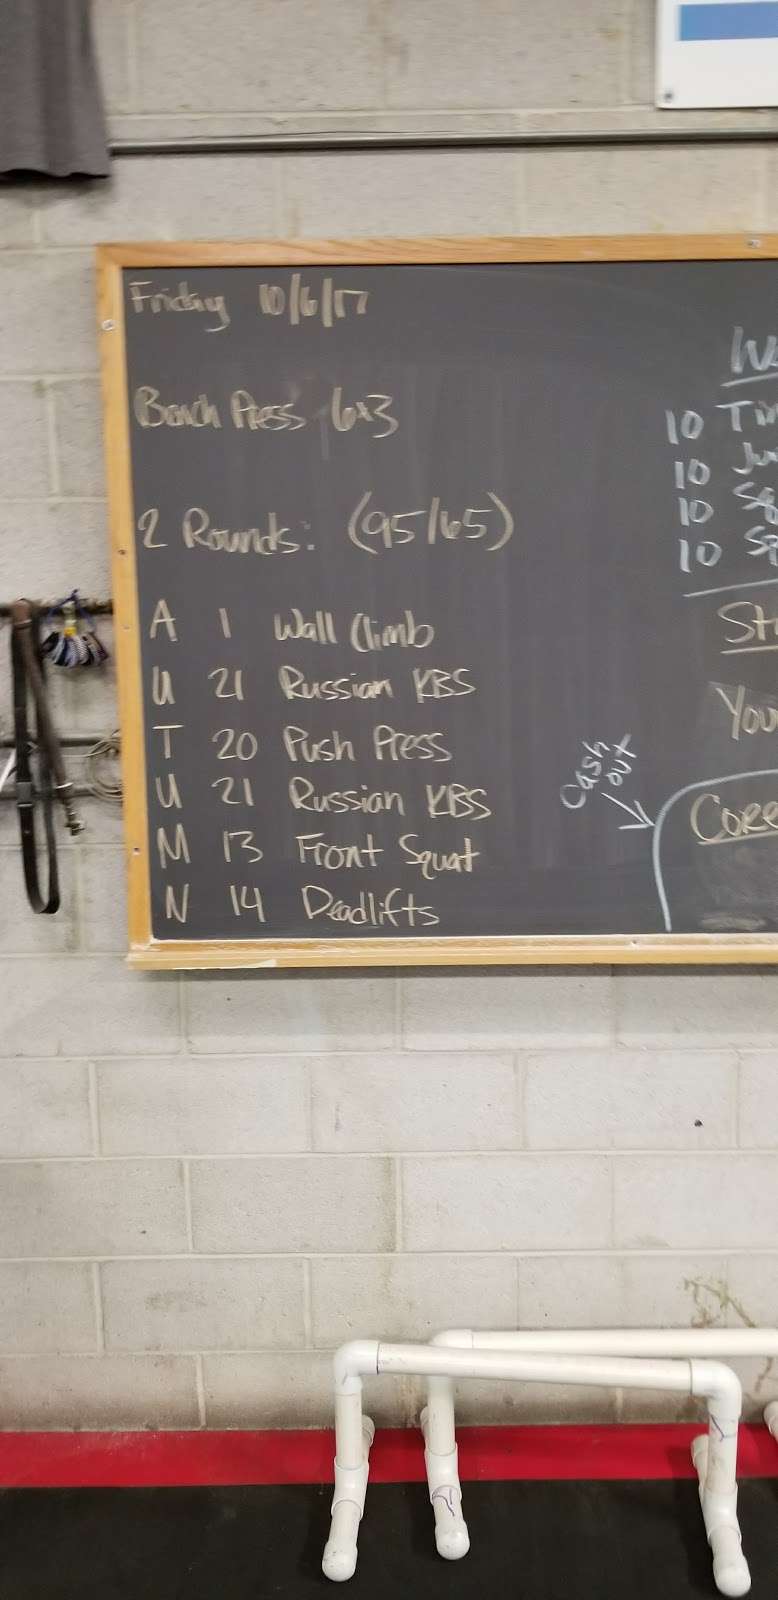 Friday 10/6/17
Bench Press 6x3
2 Rounds: (95/65)
A 1 Wall Climb
U 21 Russian KBS
T 20 Push Press
U 21 Russian KBS
M 13 Front Squat
N 14 Deadlifts
10
10
10
10
You
Cash out
Core